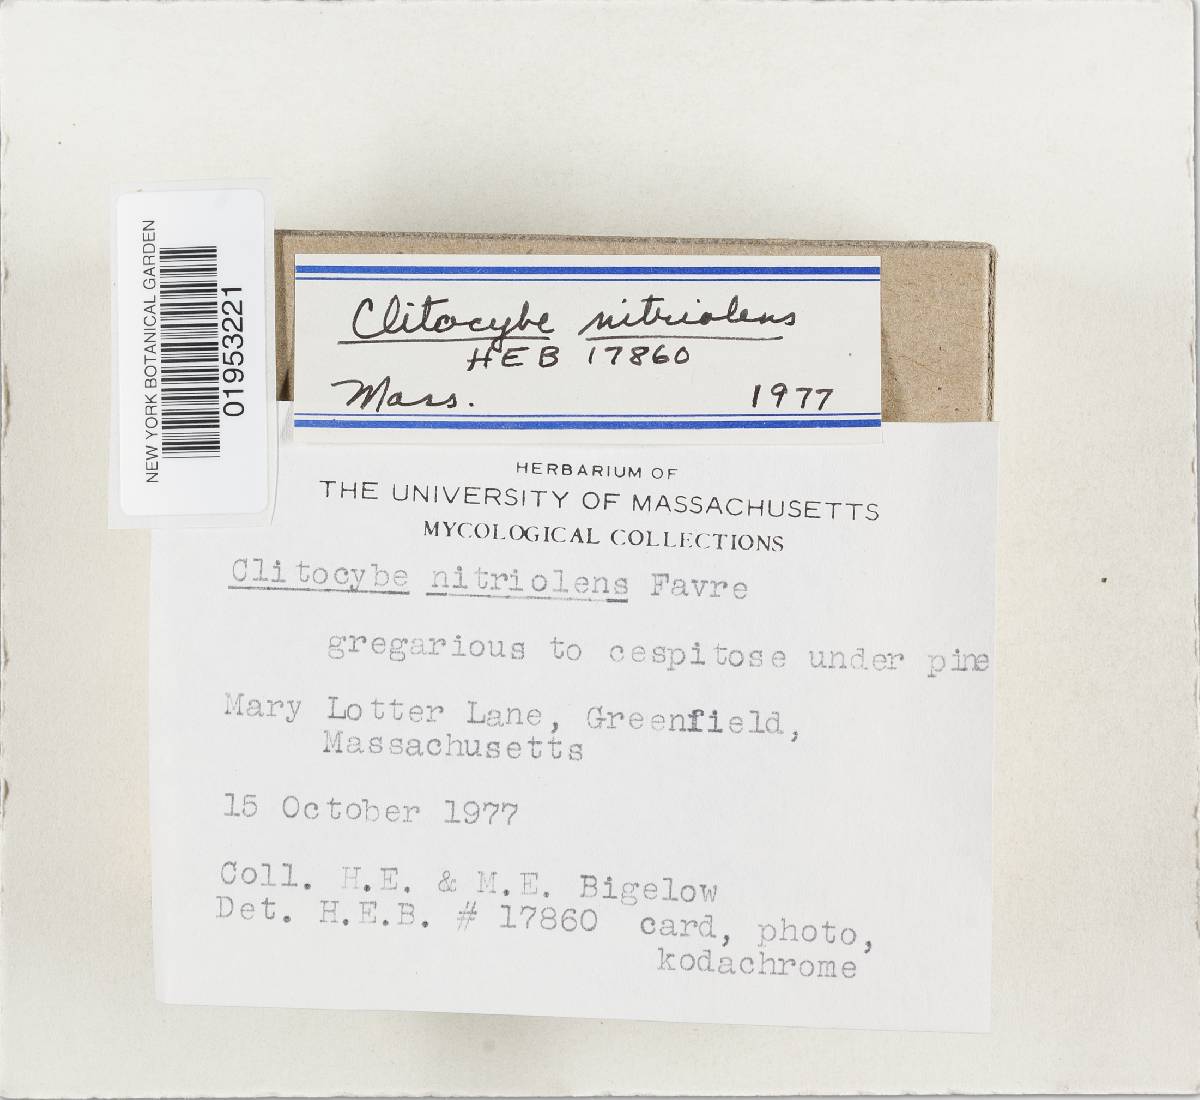 NEW YORK BOTANICAL GARDEN
01953221
Clitocybe nitriolens
HEB 17860
Mass. 1977
HERBARIUM OF
THE UNIVERSITY OF MASSACHUSETTS
MYCOLOGICAL COLLECTIONS
Clitocybe nitriolens Favre
gregarious to cespitose under pine
Mary Lotter Lane, Greenfield,
Massachusetts
15 October 1977
Coll. H.E. & M.E. Bigelow
Det. H.E.B. # 17860 card, photo,
kodachrome